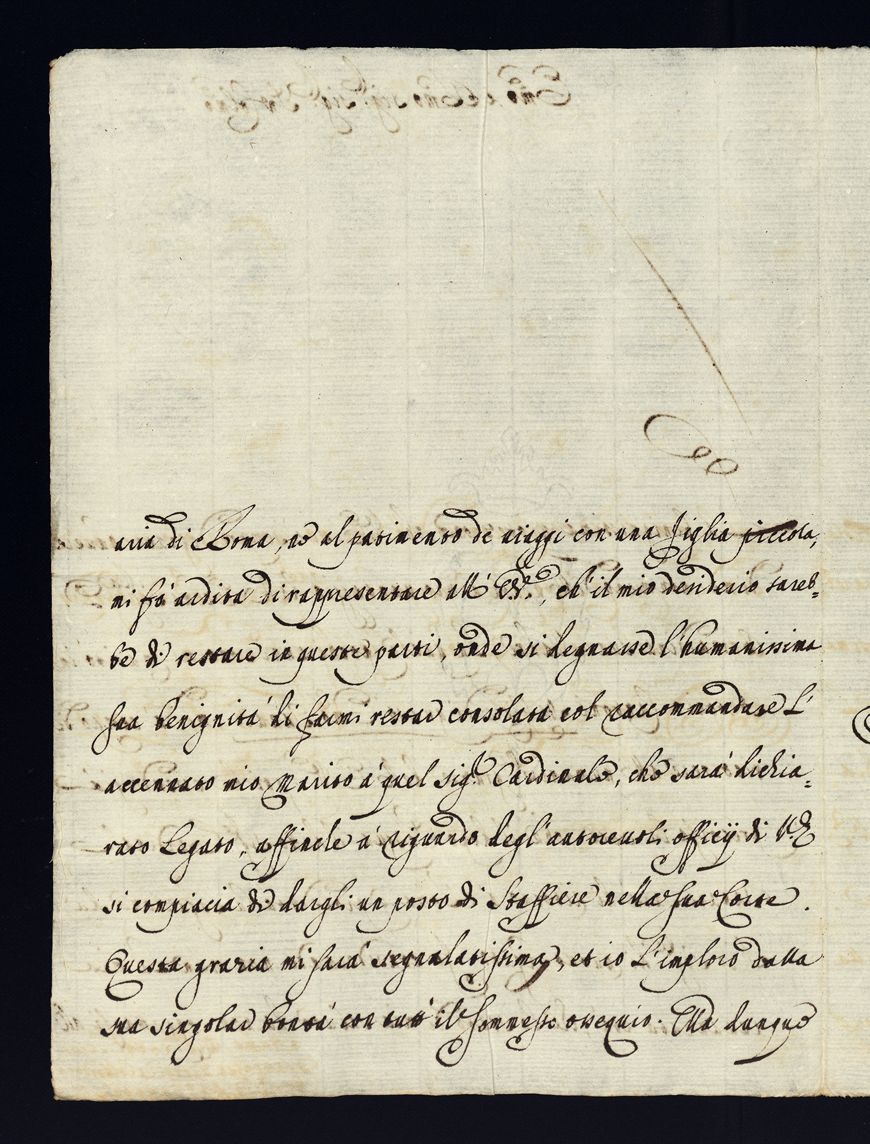 aria di Roma, ne al patimento de viaggi con una figlia piccola,
mi fá ardita di rappresentare all' E.V., ch' il mio desiderio sareb-
be di restare in queste parti, onde si degnasse l'humanissima
sua benignitá di farmi restar consolata col raccommandare l'
accennato mio Marito á quel Sig.r Cardinale, che sará dichia-
rato Legato, affinche á riguardo degl' autorevoli officij di V.E.
si compiacia di dargli un posto di Staffiere nella sua Corte.
Questa grazia mi sará segnalatissima, et io l'imploro dalla
sua singolar bontá con tutt' il sommesso ossequio. Ella dunque